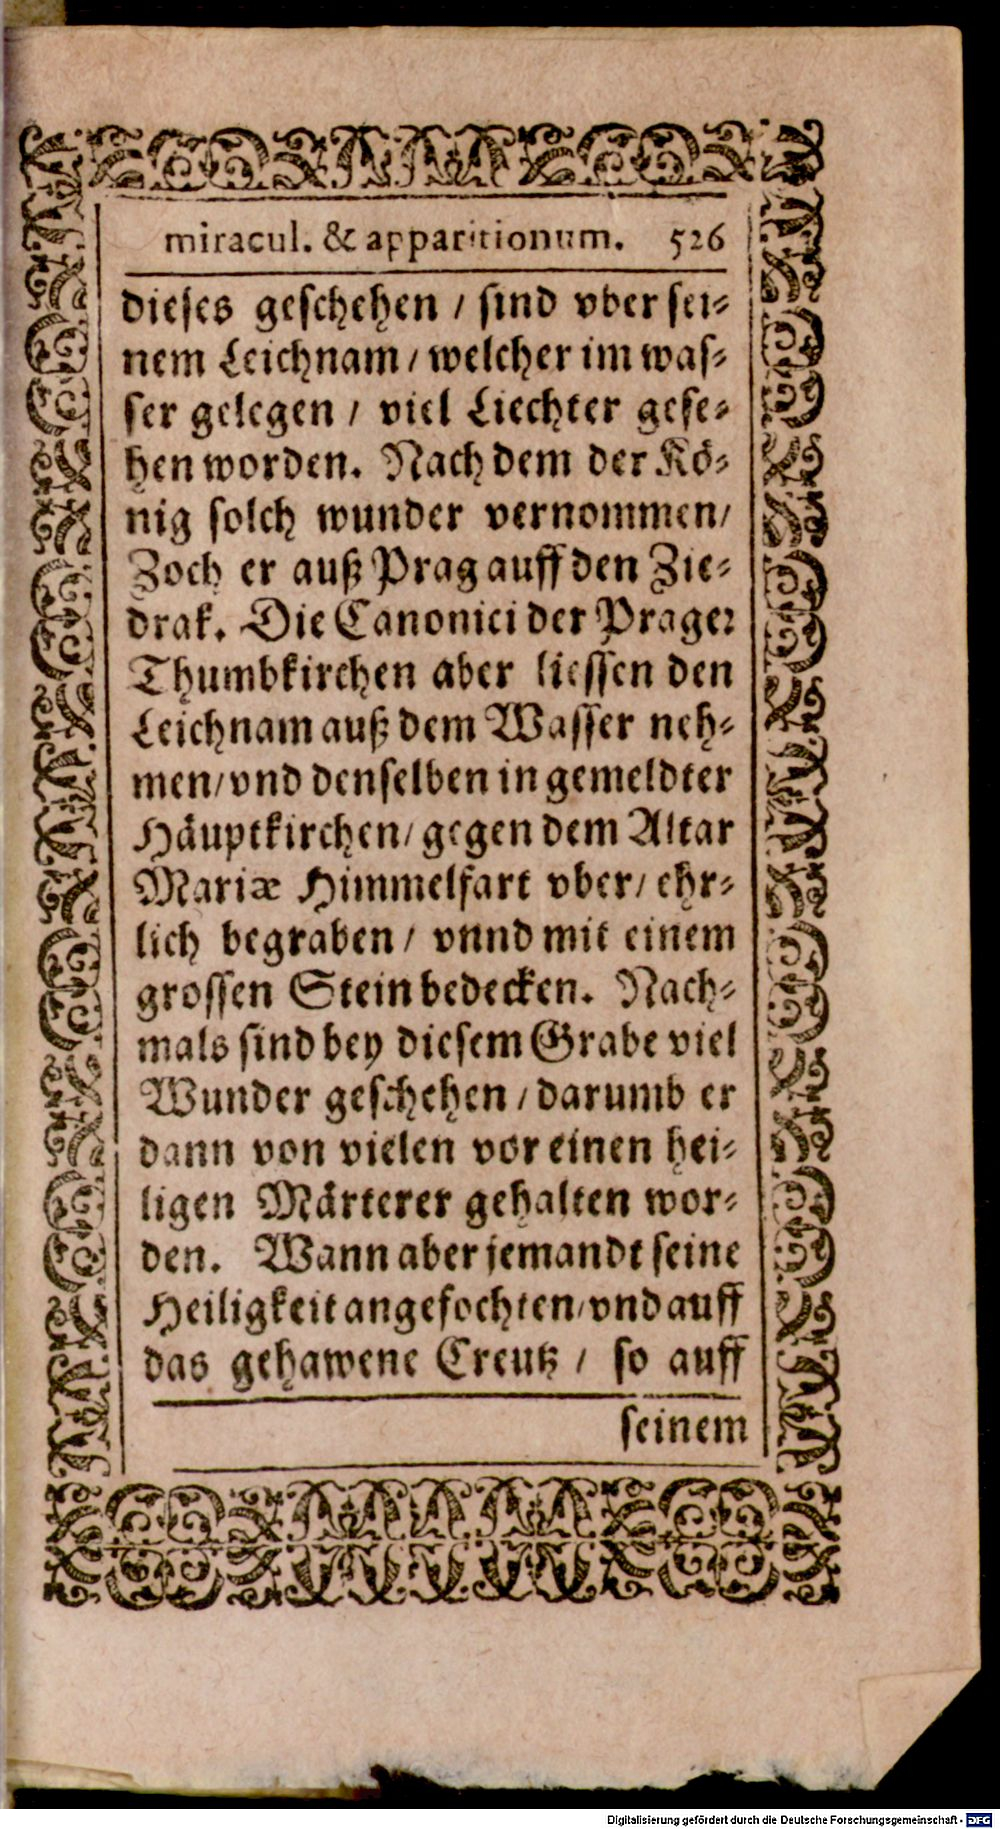 miracul. & apparitionum. 526
dieses geschehen / sind vber sei⸗
nem Leichnam / welcher im was⸗
ser gelegen / viel Liechter gese⸗
hen worden. Nach dem der Kö⸗
nig solch wunder vernommen /
Zoch er auß Prag auff den Zie⸗
drak. Die Canonici der Prager
Thumbkirchen aber liessen den
Leichnam auß dem Wasser neh⸗
men / vnd denselben in gemeldter
Häuptkirchen / gegen dem Altar
Mariæ Himmelfart vber / ehr⸗
lich begraben / vnnd mit einem
grossen Stein bedecken. Nach⸗
mals sind bey diesem Grabe viel
Wunder geschehen / darumb er
dann von vielen vor einen hei⸗
ligen Märterer gehalten wor⸗
den. Wann aber jemandt seine
Heiligkeit angefochten / vnd auff
das gehawene Creutz / so auff
seinem
Digitalisierung gefördert durch die Deutsche Forschungsgemeinschaft - DFG